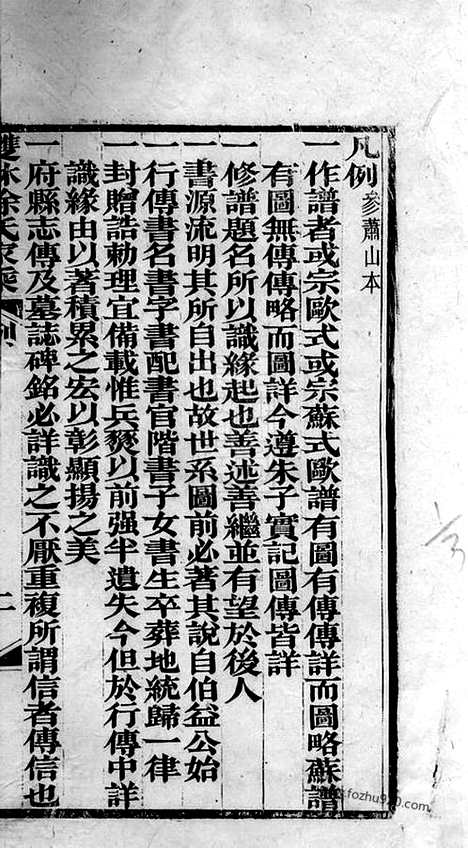 凡例參蕭山本
一作譜者或宗歐式或宗蘇式歐譜有圖有傳傳詳而圖略蘇譜
有圖無傳傳略而圖詳今遵朱子實記圖傳皆詳
一修譜題名所以識緣起也善述善繼並有望於後人
一書源流明其所自出也故世系圖前必著其說自伯益公始
一行傳書名書字書配書官階書子女書生卒葬地統歸一律
一封贈誥勅理宜備載惟兵燹以前强半遺失今但於行傳中詳
識緣由以著積累之宏以彰顯揚之美
一府縣志傳及墓誌碑銘必詳識之不厭重複所謂信者傳信也
雙林徐氏家乘
例
二
fozhu920.com